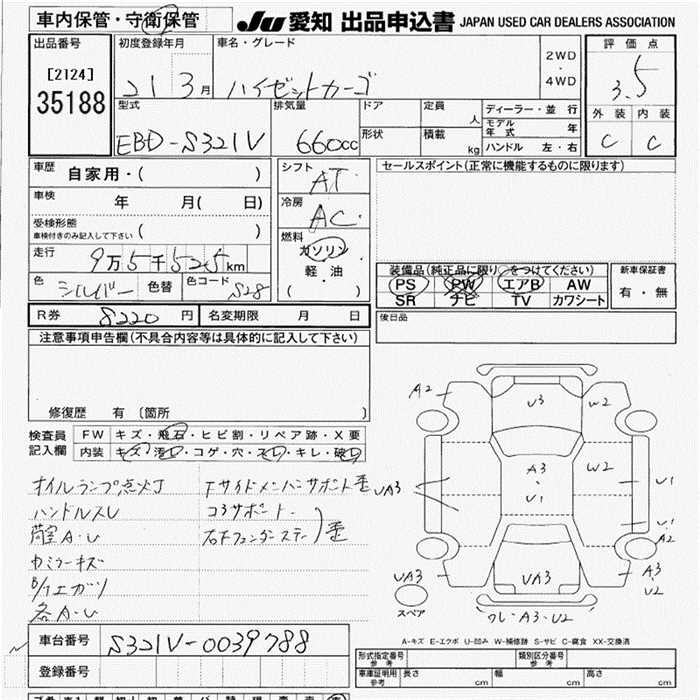 車内保管・守衛保管
JU 愛知 出品申込書 JAPAN USED CAR DEALERS ASSOCIATION
出品番号
[2124]
35188
初度登録年月
21 3月
車名・グレード
ハイゼットカーゴ
2WD
・
4WD
評価点
3.5
外装 内装
C C
型式
EBD-S321V
排気量
660cc
ドア
形状
定員
人
積載
kg
ディーラー・並行
モデル年式 年
ハンドル 左・右
車歴
自家用・( )
車検
年 月( 日)
受検形態
車検付きのみ記入して下さい ( )
走行
9万5千525km
色
シルバー
色替
色コード
S28
シフト
AT
冷房
AC
燃料
ガソリン
・
軽・油
( )
セールスポイント(正常に機能するものに限ります)
装備品(純正品に限り○をつけてください)
PS PW エアB AW
SR ナビ TV カワシート
新車保証書
有・無
後日品
R券 8220 円
名変期限 月 日
注意事項申告欄(不具合内容等は具体的に記入して下さい)
修復歴 有 〔箇所 〕
検査員
記入欄
FW キズ・飛石・ヒビ割・リペア跡・X要
内装 キズ・汚れ・コゲ・穴・スレ・キレ・破れ
オイルランプ点灯
ハンドルスレ
荷室A・U
カミラーキズ
B/Tエガリ
各A・U
Fサイドメンバーサポート歪
コアサポート
右Fフェンダーステー
歪
A2
U3
W2
A3
U1
W2
UA3
U1
U1
A2
UA3
UA3
A3
U2
ワレ・A3・U2
スペア
A-キズ E-エクボ U-凹み W-補修跡 S-サビ C-腐食 XX-交換済
車台番号
S321V-0039788
登録番号
形式指定番号
参考
類別区分番号
参考
車庫証明用
参考
長さ cm
幅 cm
高さ cm